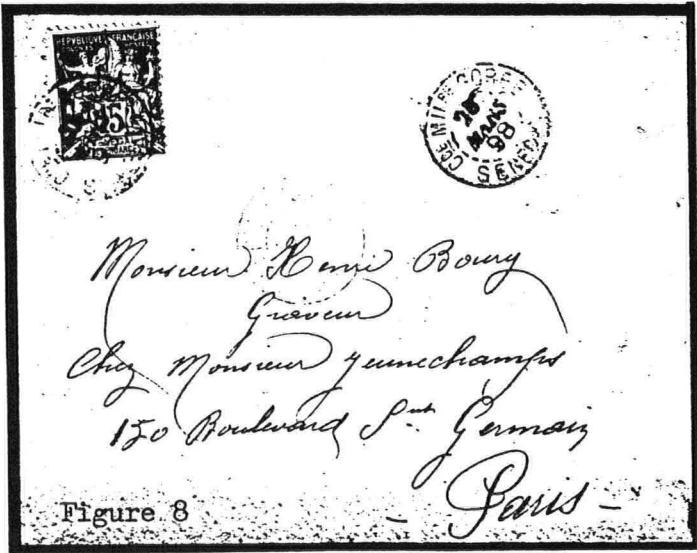 REPUBLIQUE FRANCAISE
COLONIES POSTES
Cce MILre GOREE
28
MARS
98
SENEGAL
Monsieur Henri Boury
Graveur
Chez Monsieur Jeunechamps
150 Boulevard St Germain
Paris -
Figure 8